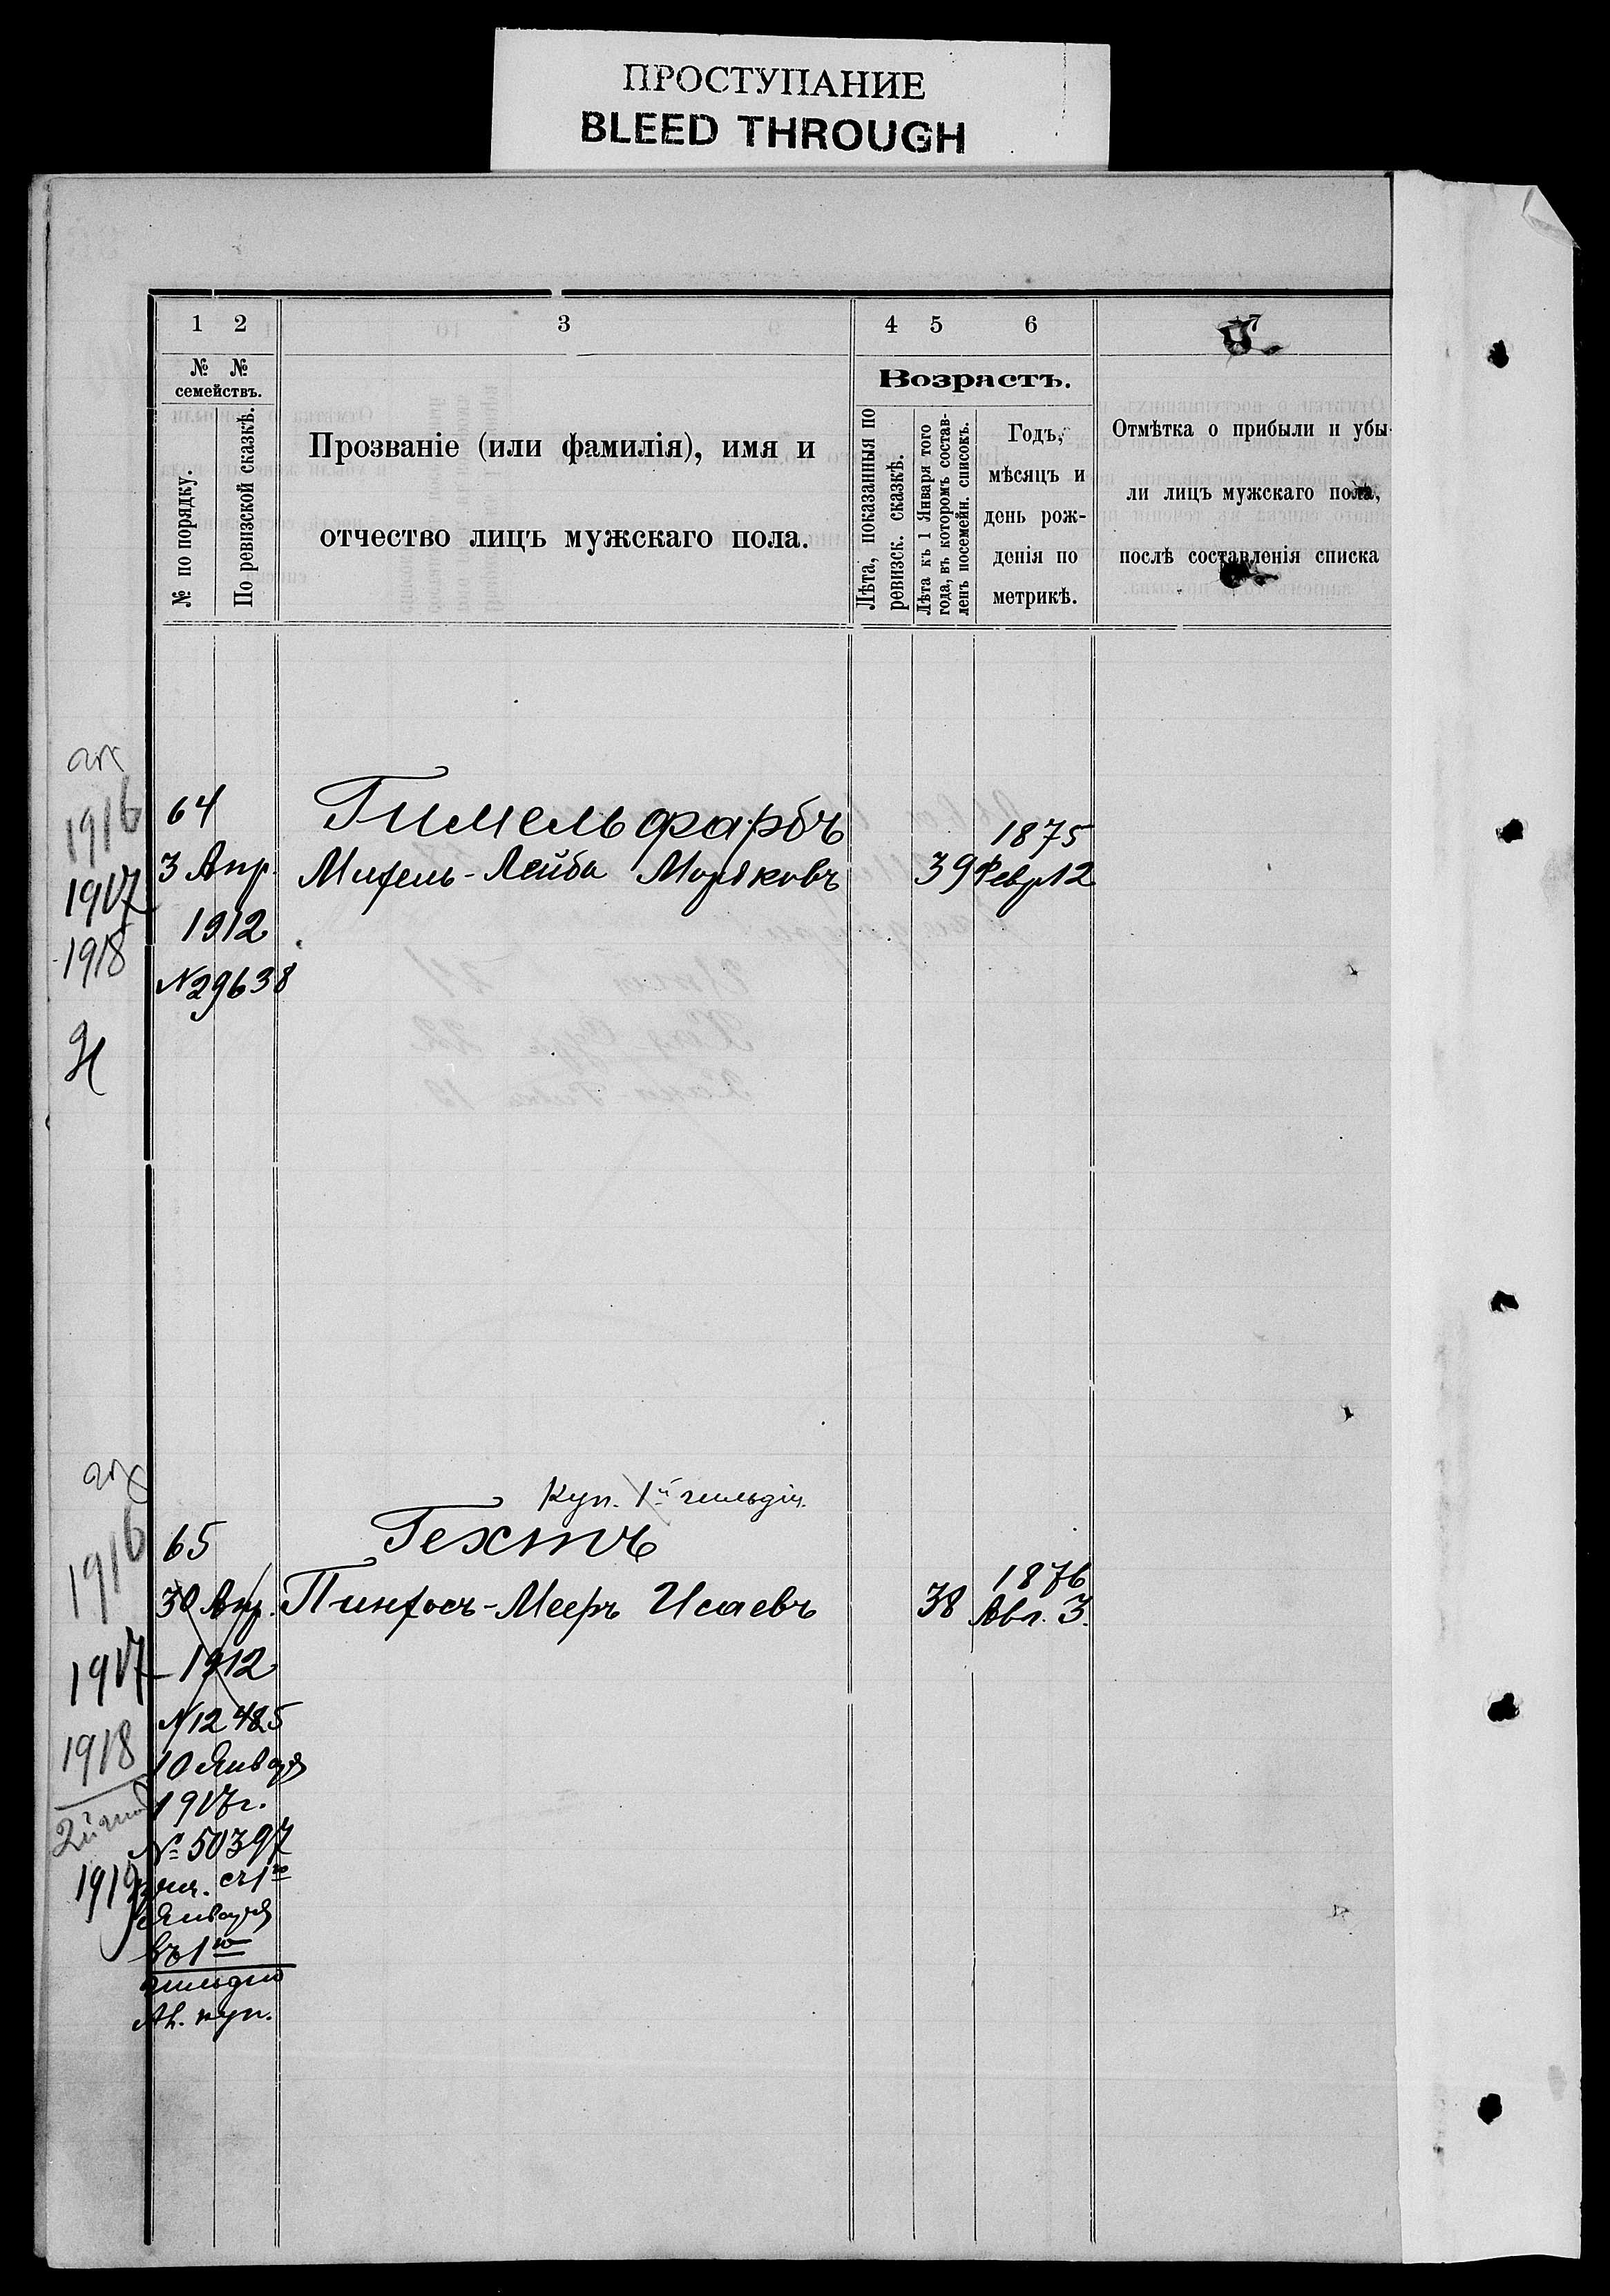 ПРОСТУПАНИЕ
BLEED THROUGH
1 2 3 4 5 6 7
№ № семействъ.
№ по порядку.
По ревизской сказкѣ.
Прозваніе (или фамилія), имя и
отчество лицъ мужскаго пола.
Возрастъ.
Лѣта, показанныя по
ревизск. сказкѣ.
Лѣта къ 1 Января того
года, въ которомъ состав-
ленъ посемейн. списокъ.
Годъ,
мѣсяцъ и
день рож-
денія по
метрикѣ.
Отмѣтка о прибыли и убы-
ли лицъ мужскаго пола,
послѣ составленія списка
1916
1917
1918
64
3 Апр.
1912
№29638
Гимельфарбъ
Михель-Лейба Моріковъ
39
1875
Февр 12
1916
1917
1918
2й гил
1919
65
30 Апр.
1912
№12485
10 Января
1917 г.
№ 50397
съ 1го
Января
въ 1ю
гильдію
куп.
Куп. 1й гильдіи.
Гехтъ
Пинхосъ-Мееръ Исаевъ
38
1876
Авг. 3.